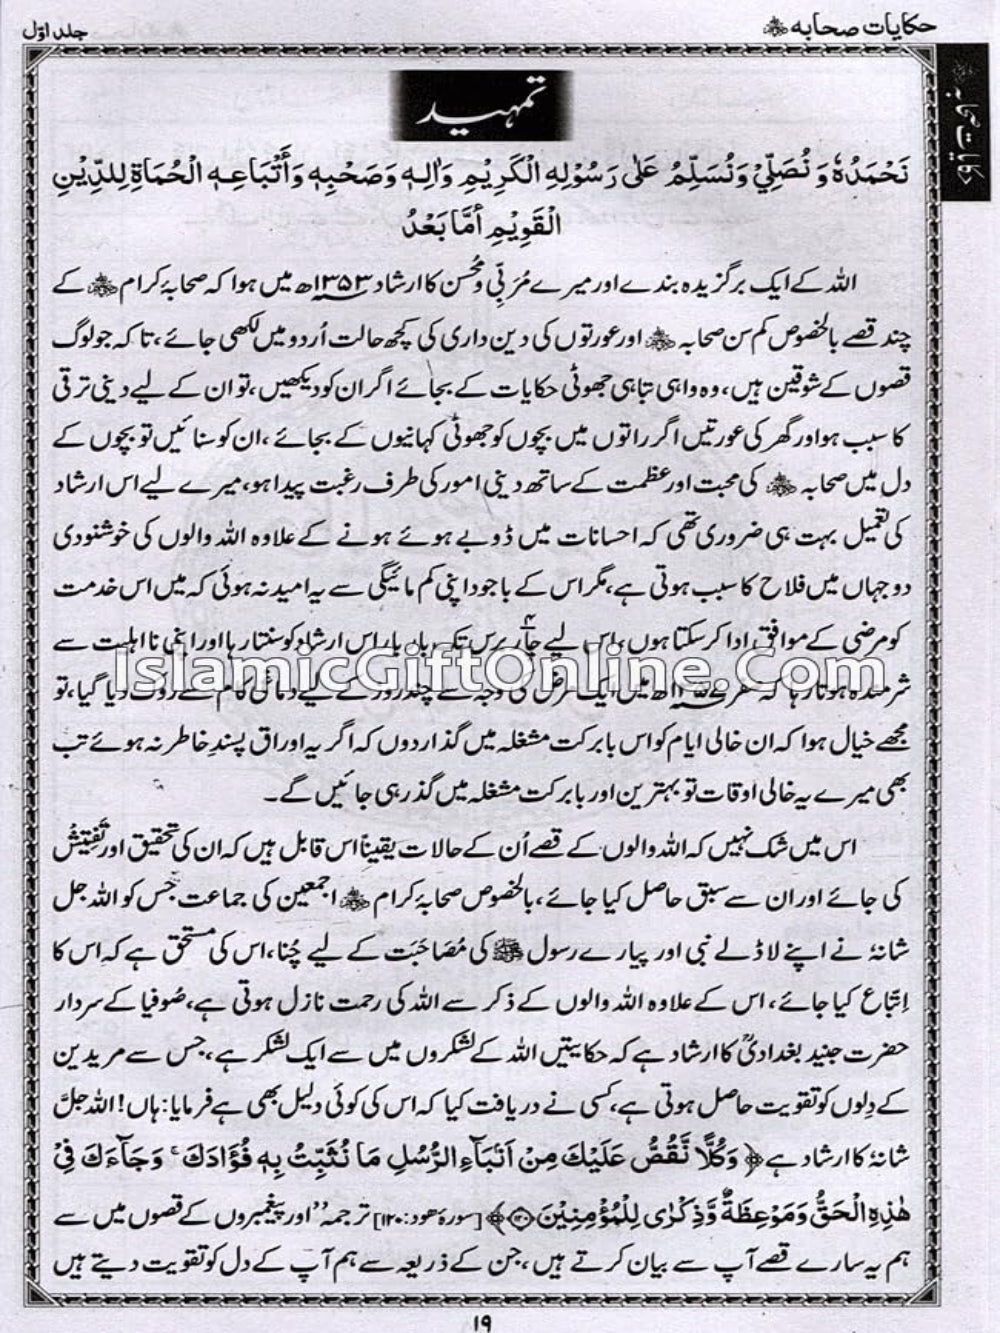 حکایات صحابہ رضی اللہ عنہم
جلد اوّل
تمہید
نَحْمَدُہٗ وَ نُصَلِّیْ وَنُسَلِّمُ عَلٰی رَسُوْلِہِ الْکَرِیْمِ وَاٰلِہٖ وَصَحْبِہٖ وَأَتْبَاعِہِ الْحُمَاۃِ لِلدِّیْنِ
الْقَوِیْمِ أَمَّا بَعْدُ
اللہ کے ایک برگزیدہ بندے اور میرے مُرَبِّی و مُحسن کا ارشاد ۱۳۵۳ھ میں ہوا کہ صحابۂ کرام رضی اللہ عنہم کے
چند قصے بالخصوص کم سن صحابہ رضی اللہ عنہم اور عورتوں کی دین داری کی کچھ حالت اُردو میں لکھی جائے، تاکہ جو لوگ
قصوں کے شوقین ہیں، وہ واہی تباہی جھوٹی حکایات کے بجائے اگر ان کو دیکھیں، تو ان کے لیے دینی ترقی
کا سبب ہو اور گھر کی عورتیں اگر راتوں میں بچوں کو جھوٹی کہانیوں کے بجائے، ان کو سنائیں تو بچوں کے
دل میں صحابہ رضی اللہ عنہم کی محبت اور عظمت کے ساتھ دینی امور کی طرف رغبت پیدا ہو، میرے لیے اس ارشاد
کی تعمیل بہت ہی ضروری تھی کہ احسانات میں ڈوبے ہوئے ہونے کے علاوہ اللہ والوں کی خوشنودی
دو جہاں میں فلاح کا سبب ہوتی ہے، مگر اس کے باجود اپنی کم مائیگی سے یہ امید نہ ہوئی کہ میں اس خدمت
کو مرضی کے موافق ادا کر سکتا ہوں، اس لیے چار برس تک بار بار اس ارشاد کو سنتا رہا اور اپنی نا اہلیت سے
IslamicGiftOnline.Com
شرمندہ ہوتا رہا کہ صفر ھ میں ایک مرض کی وجہ سے چند روز کے لیے دماغی کام سے روک دیا گیا، تو
مجھے خیال ہوا کہ ان خالی ایام کو اس بابرکت مشغلہ میں گذار دوں کہ اگر یہ اوراق پسندِ خاطر نہ ہوئے تب
بھی میرے یہ خالی اوقات تو بہترین اور بابرکت مشغلہ میں گذر ہی جائیں گے۔
اس میں شک نہیں کہ اللہ والوں کے قصے اُن کے حالات یقیناً اس قابل ہیں کہ ان کی تحقیق اور تَفْتِیْش
کی جائے اور ان سے سبق حاصل کیا جائے، بالخصوص صحابۂ کرام رضی اللہ عنہم اجمعین کی جماعت جس کو اللہ جل
شانہٗ نے اپنے لاڈلے نبی اور پیارے رسول ﷺ کی مُصَاحَبَت کے لیے چُنا، اس کی مستحق ہے کہ اس کا
اِتِّباع کیا جائے، اس کے علاوہ اللہ والوں کے ذکر سے اللہ کی رحمت نازل ہوتی ہے، صُوفیا کے سردار
حضرت جنید بغدادیؒ کا ارشاد ہے کہ حکایتیں اللہ کے لشکروں میں سے ایک لشکر ہے، جس سے مریدین
کے دِلوں کو تقویت حاصل ہوتی ہے، کسی نے دریافت کیا کہ اس کی کوئی دلیل بھی ہے فرمایا: ہاں! اللہ جلَّ
شانہٗ کا ارشاد ہے ﴿ وَکُلًّا نَّقُصُّ عَلَیْکَ مِنْ اَنْۢبَآءِ الرُّسُلِ مَا نُثَبِّتُ بِہٖ فُؤَادَکَ ۚ وَجَآءَکَ فِیْ
ھٰذِہِ الْحَقُّ وَمَوْعِظَۃٌ وَّذِکْرٰی لِلْمُؤْمِنِیْنَ ﴿۱۲۰﴾﴾ [سورۂ ھود: ۱۲۰] ترجمہ ’’اور پیغمبروں کے قصوں میں سے
ہم یہ سارے قصے آپ سے بیان کرتے ہیں، جن کے ذریعہ سے ہم آپ کے دل کو تقویت دیتے ہیں
۱۹